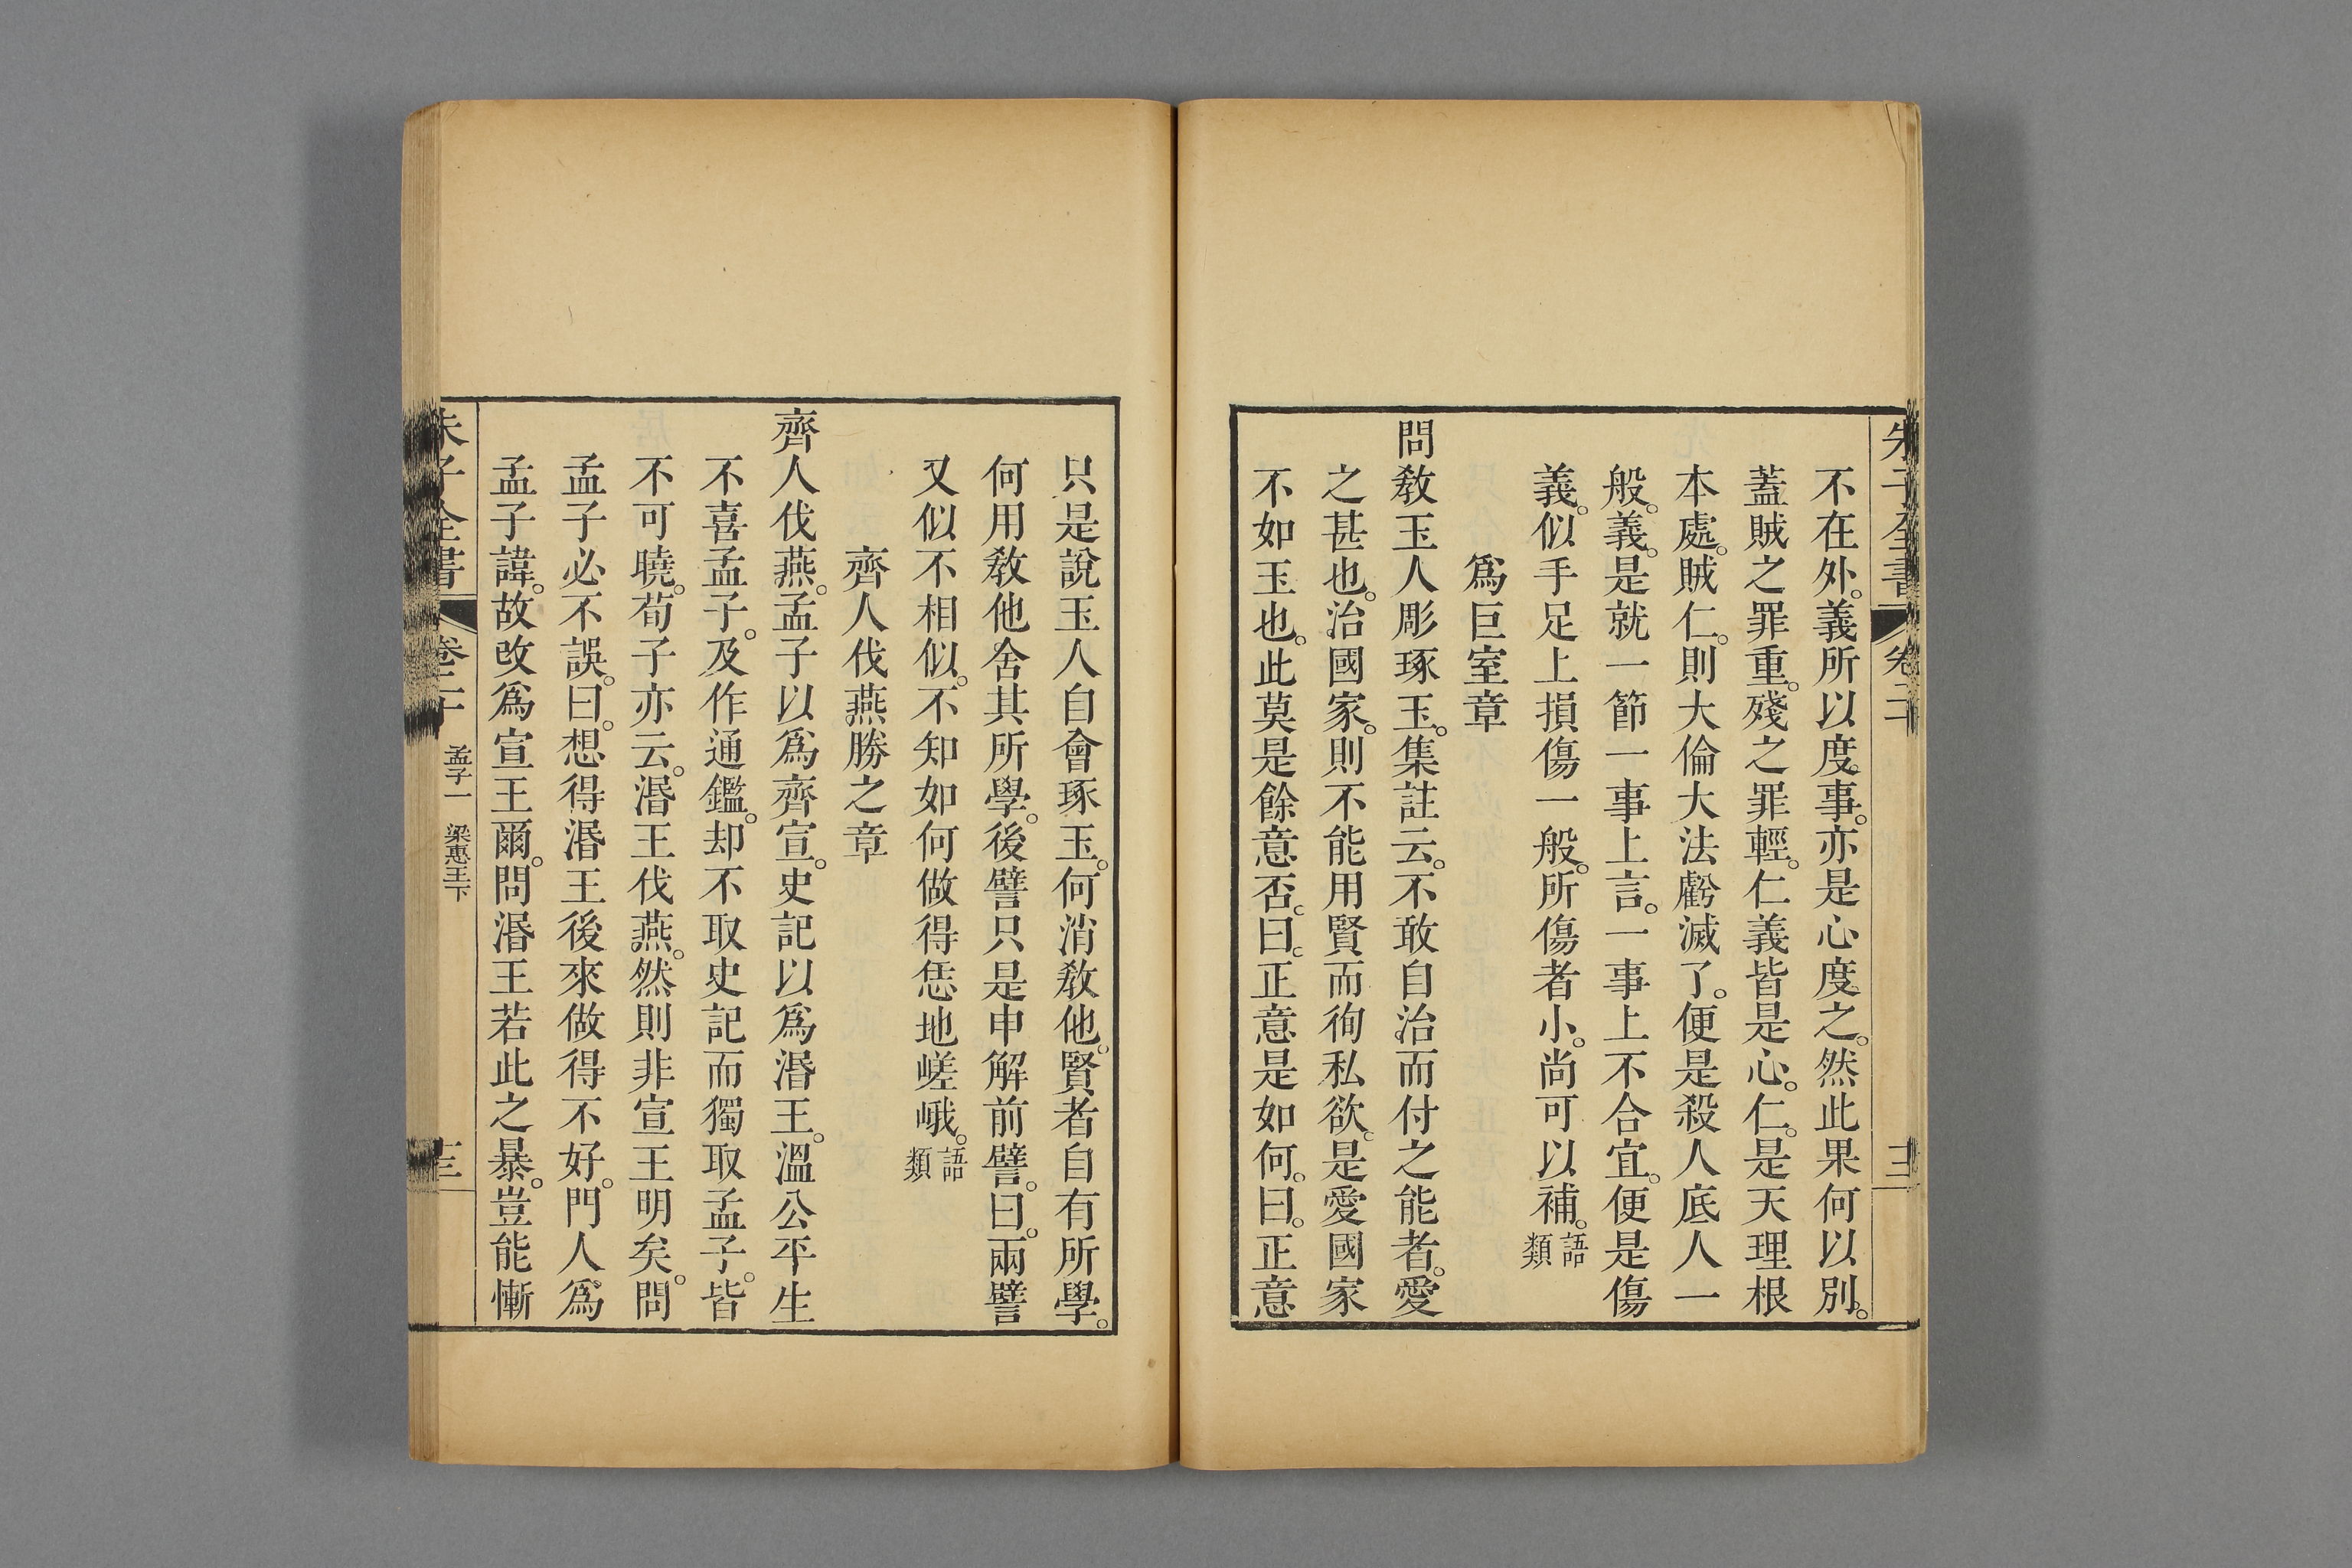 朱子全書 卷二十 十二
不在外。義所以度事。亦是心度之。然此果何以別。
蓋賊之罪重。殘之罪輕。仁義皆是心。仁。是天理根
本處。賊仁。則大倫大法虧滅了。便是殺人底人一
般。義。是就一節一事上言。一事上不合宜。便是傷
義。似手足上損傷一般。所傷者小。尚可以補。語類
爲巨室章
問敎玉人彫琢玉。集註云。不敢自治而付之能者。愛
之甚也。治國家。則不能用賢而徇私欲。是愛國家
不如玉也。此莫是餘意否。曰。正意是如何。曰。正意
只是說玉人自會琢玉。何消敎他。賢者自有所學。
何用敎他舍其所學。後譬只是申解前譬。曰。兩譬
又似不相似。不知如何做得恁地嵯峨。語類
齊人伐燕勝之章
齊人伐燕。孟子以爲齊宣。史記以爲湣王。溫公平生
不喜孟子。及作通鑑。却不取史記而獨取孟子。皆
不可曉。荀子亦云。湣王伐燕。然則非宣王明矣。問
孟子必不誤。曰。想得湣王後來做得不好。門人爲
孟子諱。故改爲宣王爾。問湣王若此之暴。豈能慚
朱子全書 卷二十 孟子一 梁惠王下 十三